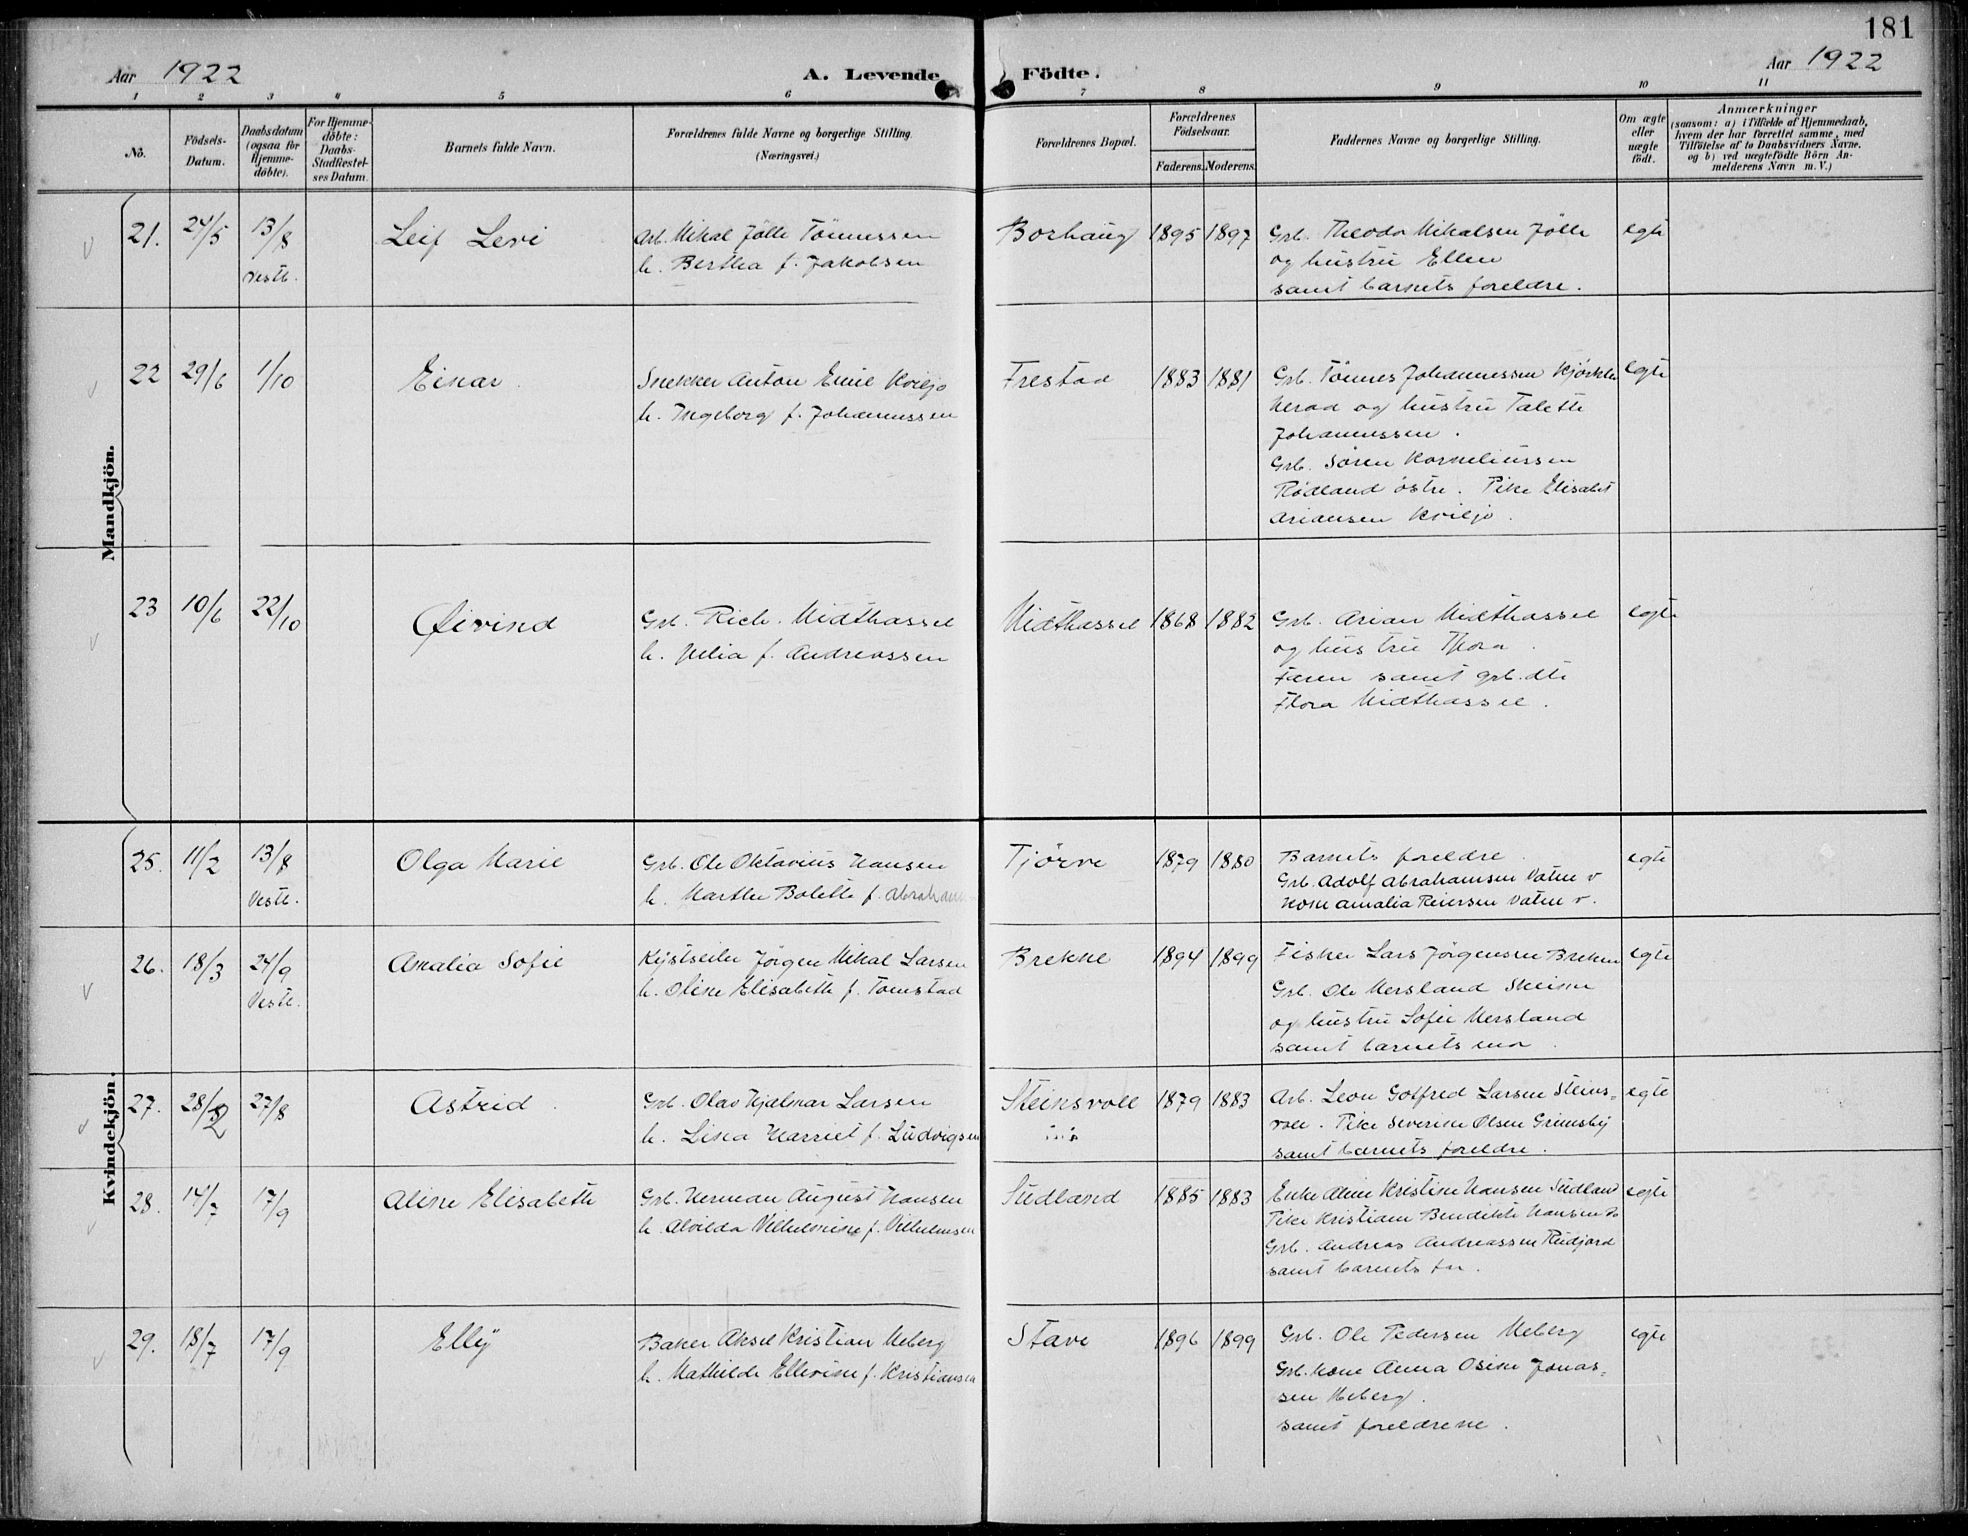 181
Aar 1922
A. Levende Födte.
Aar 1922
1 2 3 4 5 6 7 8 9 10 11
No.
Födsels-
Datum.
Daabsdatum
(ogsaa for
Hjemme-
döbte).
For Hjemme-
döbte:
Daabs-
Stadfæstel-
ses Datum.
Barnets fulde Navn.
Forældrenes fulde Navne og borgerlige Stilling.
(Næringsvei.)
Forældrenes Bopæl.
Forældrenes
Födselsaar.
Faderens. Moderens.
Faddernes Navne og borgerlige Stilling.
Om ægte
eller
uægte
födt.
Anmærkninger
(saasom: a) i Tilfælde af Hjemmedaab,
hvem der har forrettet samme, med
Tilföielse af to Daabsvidners Navne,
og b) ved uægtefödte Börn An-
melderens Navn m. V.)
Mandkjön.
21. 24/5 13/8 Leif Levi Arb. Mikal Jölle Tönnessen Borhaug 1895 1897 Grb. Theodor Mikalsen Jölle egte
Vestb. h. Bertha f. Jakobsen og hustru Ellen
samt barnets foreldre.
22 29/6 1/10 Einar Snekker Anton Emil Kviljo Frestad 1883 1881 Grb. Tönnes Johannessen egte
h. Ingeborg f. Johannessen og hustru Talette
Johannessen.
Grb. Sören Korneliussen
Rödland östre. Pike Elisabet
Ariansen Kviljo.
23 10/6 22/10 Øivind Grb. Rich. Midthassel Midthassel 1868 1882 Grb. Arian Midthassel egte
h. Julia f. Andreassen og hustru Thora
Faren samt grb.dtr
Flora Midthassel.
Kvindekjön.
25. 11/2 13/8 Olga Marie Grb. Ole Oktavius Hansen Tjörve 1879 1880 Barnets foreldre egte
Vestb. h. Marthe Bolette f. Abraham Grb. Adolf Abrahamsen Vatne v
Kone Amalia Reiersen Vatne v.
26. 18/3 24/9 Amalia Sofie Kystseiler Jörgen Mikal Larsen Brekne 1894 1899 Fisker Lars Jörgensen Brekne egte
Vestb. h. Oline Elisabeth f. Tomstad Grb. Ole Mersland Skeime
og hustru Sofie Mersland
samt barnets mor.
27. 28/2 27/8 Astrid Grb. Olav Hjalmar Larsen Steinsvoll 1879 1883 Arb. Leon Gotfred Larsen Steins-
egte
h. Lina Harriet f. Ludvigsen voll. Pike Severine Olsen Grimsby
samt barnets foreldre.
28. 14/7 17/9 Aline Elisabeth Grb. Herman August Hansen Sudland 1885 1883 Enke Aline Kristine Hansen Sudland egte
h. Alvilda Vilhelmine f. Vilhelmsen Pike Kristiane Bendikte Hansen do
Grb. Andreas Andreassen Kudjord
samt barnets far.
29. 18/7 17/9 Elly Baker Aksel Kristian Meberg Stave 1896 1899 Grb. Ole Pedersen Meberg egte
h. Mathilde Ellevine f. Kristiansen Grb. kone Anna Osine Jonas-
sen Meberg.
samt foreldrene.